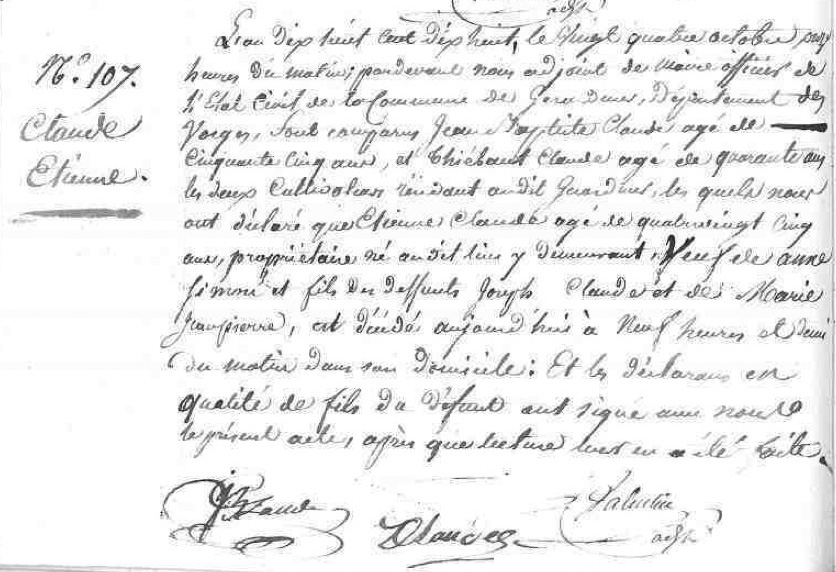 adjt
N.º 107.
Claude
Etienne.
L'an dix huit cent dix huit, le vingt quatre octobre, onze
heures du matin; pardevant nous adjoint de maire officier de
l'Etat Civil de la Commune de Gerardmer, Département des
Vosges, sont comparus Jean Baptiste Claude agé de
cinquante cinq ans, et Thiébaut Claude agé de quarante ans
les deux Cultivateurs résidant audit Gerardmer, les quels nous
ont déclaré que Etienne Claude agé de quatrevingt cinq
ans, propriétaire né audit lieu y demeurant, Veuf de anne
Simoné et fils des deffunts Joseph Claude et de Marie
Jeanpierre, est décédé aujourd'huis à Neuf heures et demi
du matin dans son domicile: Et les déclarans en
qualité de fils du défunt ont signé avec nous
le présent acte, après que lecture leur en a été faite.
Claude
Claude
Valentin
adjt